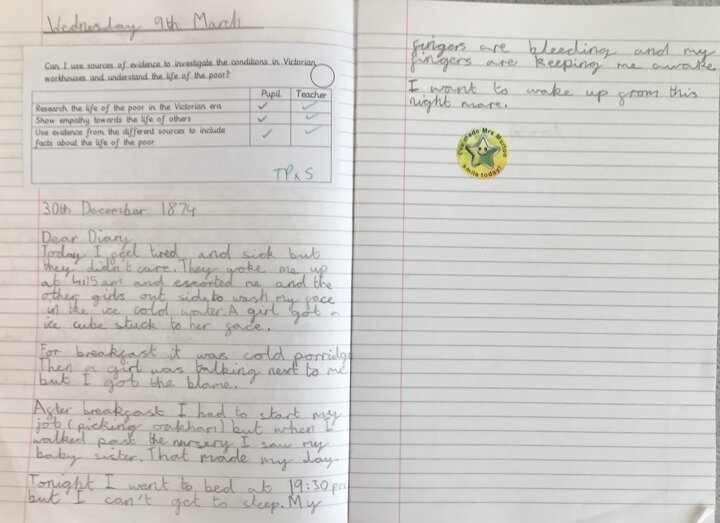 Wednesday 9th March
Can I use sources of evidence to investigate the conditions in Victorian
workhouses and understand the life of the poor?
Pupil Teacher
Research the life of the poor in the Victorian era
Show empathy towards the life of others
Use evidence from the different sources to include
facts about the life of the poor
TP x S
30th December 1874
Dear Diary
Today I feel tired and sick but
they didn't care. They woke me up
at 4:15am and escorted me and the
other girls out side to wash my face
in the ice cold water. A girl got a
ice cube stuck to her face.
For breakfast it was cold porridge
Then a girl was talking next to me
but I got the blame.
After breakfast I had to start my
job (picking oakham) but when I
walked past the nursery I saw my
baby sister. That made my day.
Tonight I went to bed at 19:30 pm
but I can't get to sleep. My
fingers are bleeding and my
fingers are keeping me awake.
I want to wake up from this
night mare.
I've made Mrs Murton
smile today!